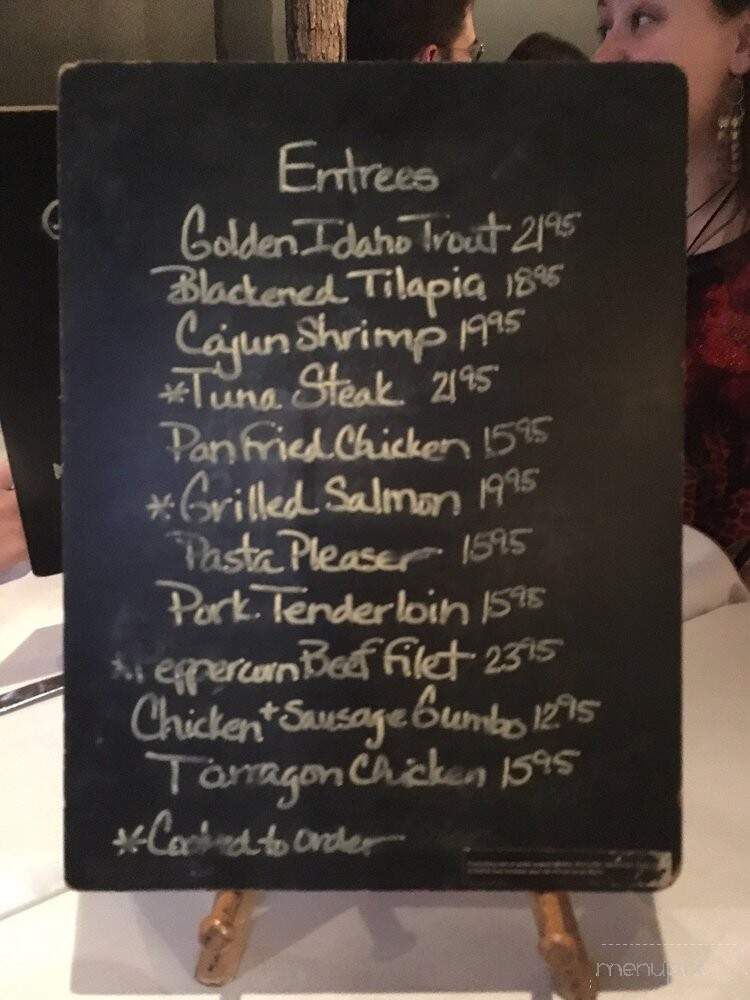 Entrees
Golden Idaho Trout 21.95
Blackened Tilapia 18.95
Cajun Shrimp 19.95
*Tuna Steak 21.95
Pan Fried Chicken 15.95
*Grilled Salmon 19.95
Pasta Pleaser 15.95
Pork Tenderloin 15.95
*Peppercorn Beef Filet 23.95
Chicken + Sausage Gumbo 12.95
Tarragon Chicken 15.95
*Cooked to order